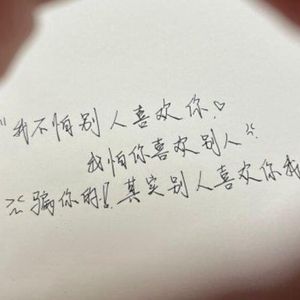 "我不怕别人喜欢你♡
我怕你喜欢别人"
骗你的！其实别人喜欢你我